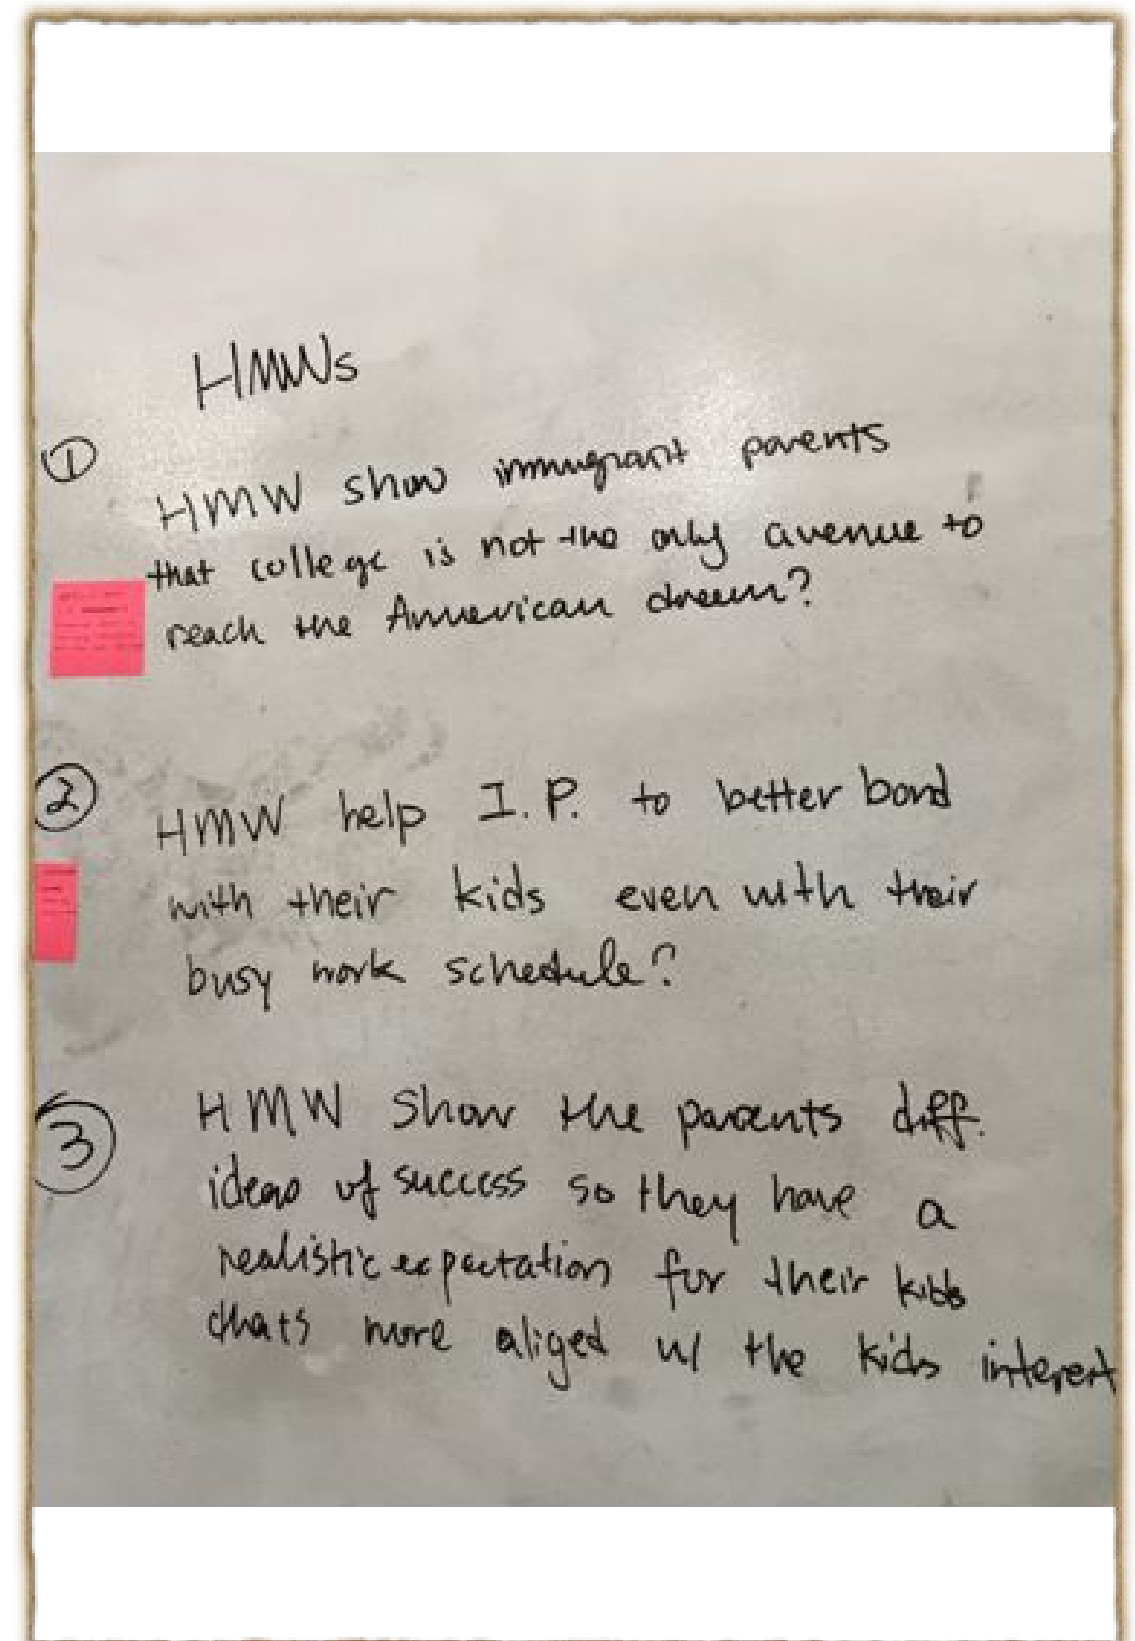 HMWs
①
HMW show immigrant parents
that college is not the only avenue to
reach the American dream?
②
HMW help I.P. to better bond
with their kids even with their
busy work schedule?
③
HMW show the parents diff.
ideas of success so they have a
realistic expectation for their kids
thats more aliged w/ the kids interest